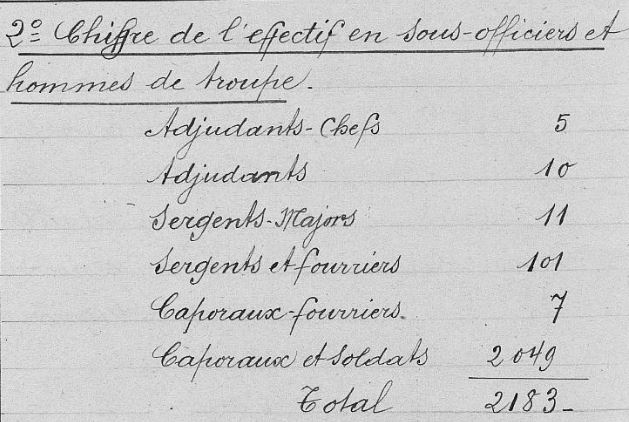 2º Chiffre de l'effectif en sous-officiers et
hommes de troupe.
Adjudants-Chefs 5
Adjudants 10
Sergents-Majors 11
Sergents et fourriers 101
Caporaux-fourriers. 7
Caporaux et Soldats 2 049
Total 2183-